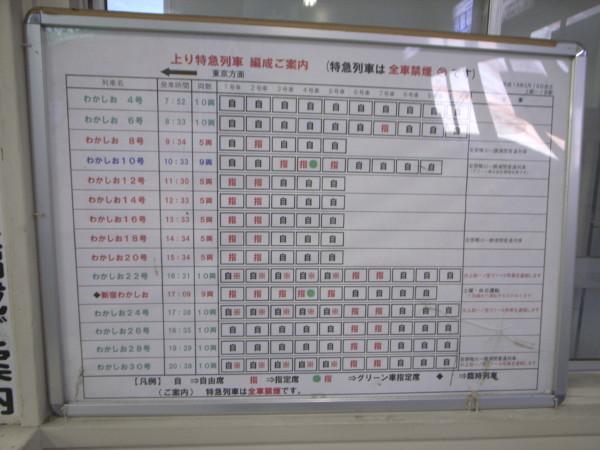 上り特急列車 編成ご案内 (特急列車は 全車禁煙 です)
東京方面
列車名 発車時間 両数 1号車 2号車 3号車 4号車 5号車 6号車 7号車 8号車
わかしお 4号 7:52 10両 自 自 自 自 自 自 自 自 自 自
わかしお 6号 8:33 10両 自 自 自 自 自 自 指 自 自 自
わかしお 8号 9:34 5両 自 指 自 自 自
わかしお10号 10:33 9両 自 自 指 指 指 自 自 自 自
わかしお12号 11:30 5両 指 指 自 自 自
わかしお14号 12:33 5両 指 指 自 自 自
わかしお16号 13:33 5両 指 指 自 自 自
わかしお18号 14:34 5両 指 指 自 自 自
わかしお20号 15:34 5両 指 指 自 自 自
わかしお22号 16:31 10両 自※ 自※ 自※ 自※ 自※ 指 指 自 自 自
◆新宿わかしお 17:09 9両 指 指 指 指 指 自 自 自 自
わかしお24号 17:38 10両 自※ 自※ 自※ 自※ 自※ 指 指 自 自 自
わかしお26号 18:35 10両 自 自 自 自 自 指 指 自 自 自
わかしお28号 19:29 10両 自 自 自 自 自 指 指 自 自 自
わかしお30号 20:38 10両 自※ 自※ 自※ 自※ 自※ 指 指 自 自 自
【凡例】 自 ⇒自由席 指 ⇒指定席 ●指 ⇒グリーン車指定席 ◆ ⇒臨時列車
(ご案内) 特急列車は全車禁煙です。